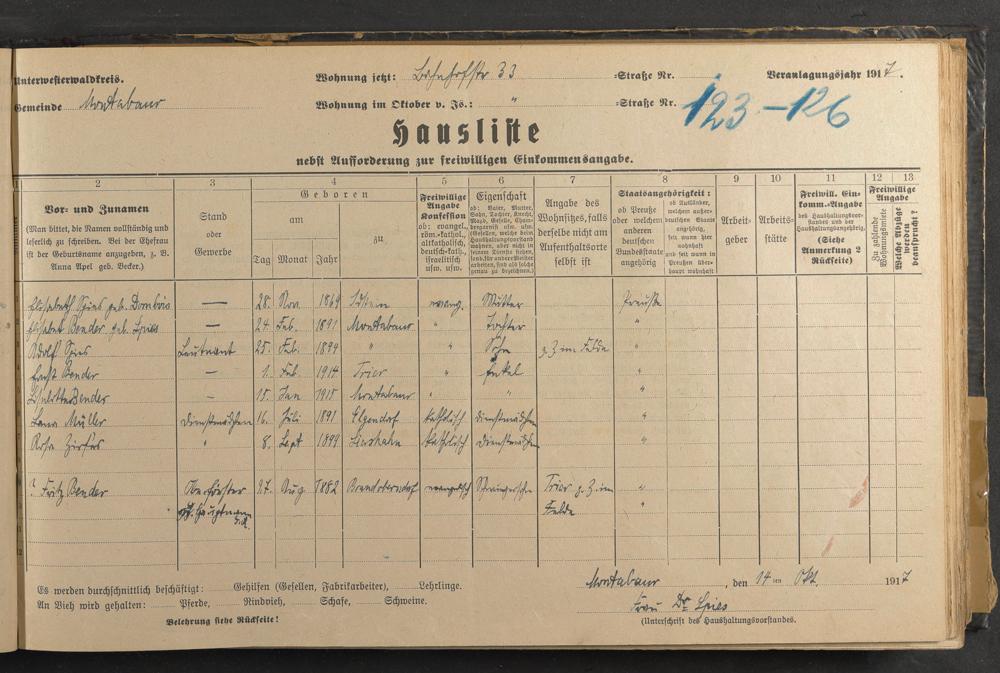 Unterwesterwaldkreis. Wohnung jetzt: Bahnhofstr 33 =Straße Nr. Veranlagungsjahr 1917.
Gemeinde Montabaur Wohnung im Oktober v. Js.: " =Straße Nr. 123.-126
Hausliste
nebst Aufforderung zur freiwilligen Einkommensangabe.
1 2 3 4 5 6 7 8 9 10 11 12 13
Vor- und Zunamen
(Man bittet, die Namen vollständig und
leserlich zu schreiben. Bei der Ehefrau
ist der Geburtsname anzugeben, z. B.
Anna Apel geb. Becker.)
Stand
oder
Gewerbe
Geboren
am
zu
Tag Monat Jahr
Freiwillige
Angabe
Konfession
ob: evangel.,
röm.-kathol.,
altkatholisch,
deutsch-kath.,
israelitisch
usw. usw.
Eigenschaft
ob: Vater, Mutter,
Sohn, Tochter, Knecht,
Magd, Geselle,
Angabe des
Wohnsitzes, falls
derselbe nicht am
Aufenthaltsorte
selbst ist
Staatsangehörigkeit:
ob Preuße
oder welchem
anderen
deutschen
Bundesstaate
angehörig
ob Ausländer,
welchem außer-
deutschen Staate
angehörig,
seit wann hier
wohnhaft
und seit wann in
Preußen über-
haupt wohnhaft
Arbeit-
geber
Arbeits-
stätte
Freiwill. Ein-
komm.-Angabe
des Haushaltungsvor-
standes und der
Haushaltungsangehörig.
(Siehe
Anmerkung 2
Rückseite)
Freiwillige
Angabe
Zu zahlende
Wohnungsmiete
Welche Abzüge
werden
beansprucht?
Elisabeth Spies geb. Dombois — 28. Nov. 1869 evang. Mutter Preuße
Elisabet Bender geb. Spies — 24. Feb. 1891 Montabaur " Tochter "
Adolf Spies Leutnant 25. Feb. 1894 " " Sohn z. Z im Felde "
Ernst Bender — 1. Feb. 1914 Trier " Enkel "
Liselotte Bender — 15. Jan 1915 Montabaur " " "
Müller Dienstmädchen 16. Juli 1891 Elgendorf katholisch Dienstmädchen "
Rosa Zirfas " 8. Sept 1899 katholisch Dienstmädchen "
? Fritz Bender Oberförster 27. Aug 1882 evangelisch Schwiegersohn Trier z. Z. im "
Hauptmann Felde "
Es werden durchschnittlich beschäftigt: Gehilfen (Gesellen, Fabrikarbeiter), Lehrlinge. Montabaur, den 14ten Okt. 1917
An Vieh wird gehalten: Pferde, Rindvieh, Schafe, Schweine. Frau Dr Spies
Belehrung siehe Rückseite! (Unterschrift des Haushaltungsvorstandes.